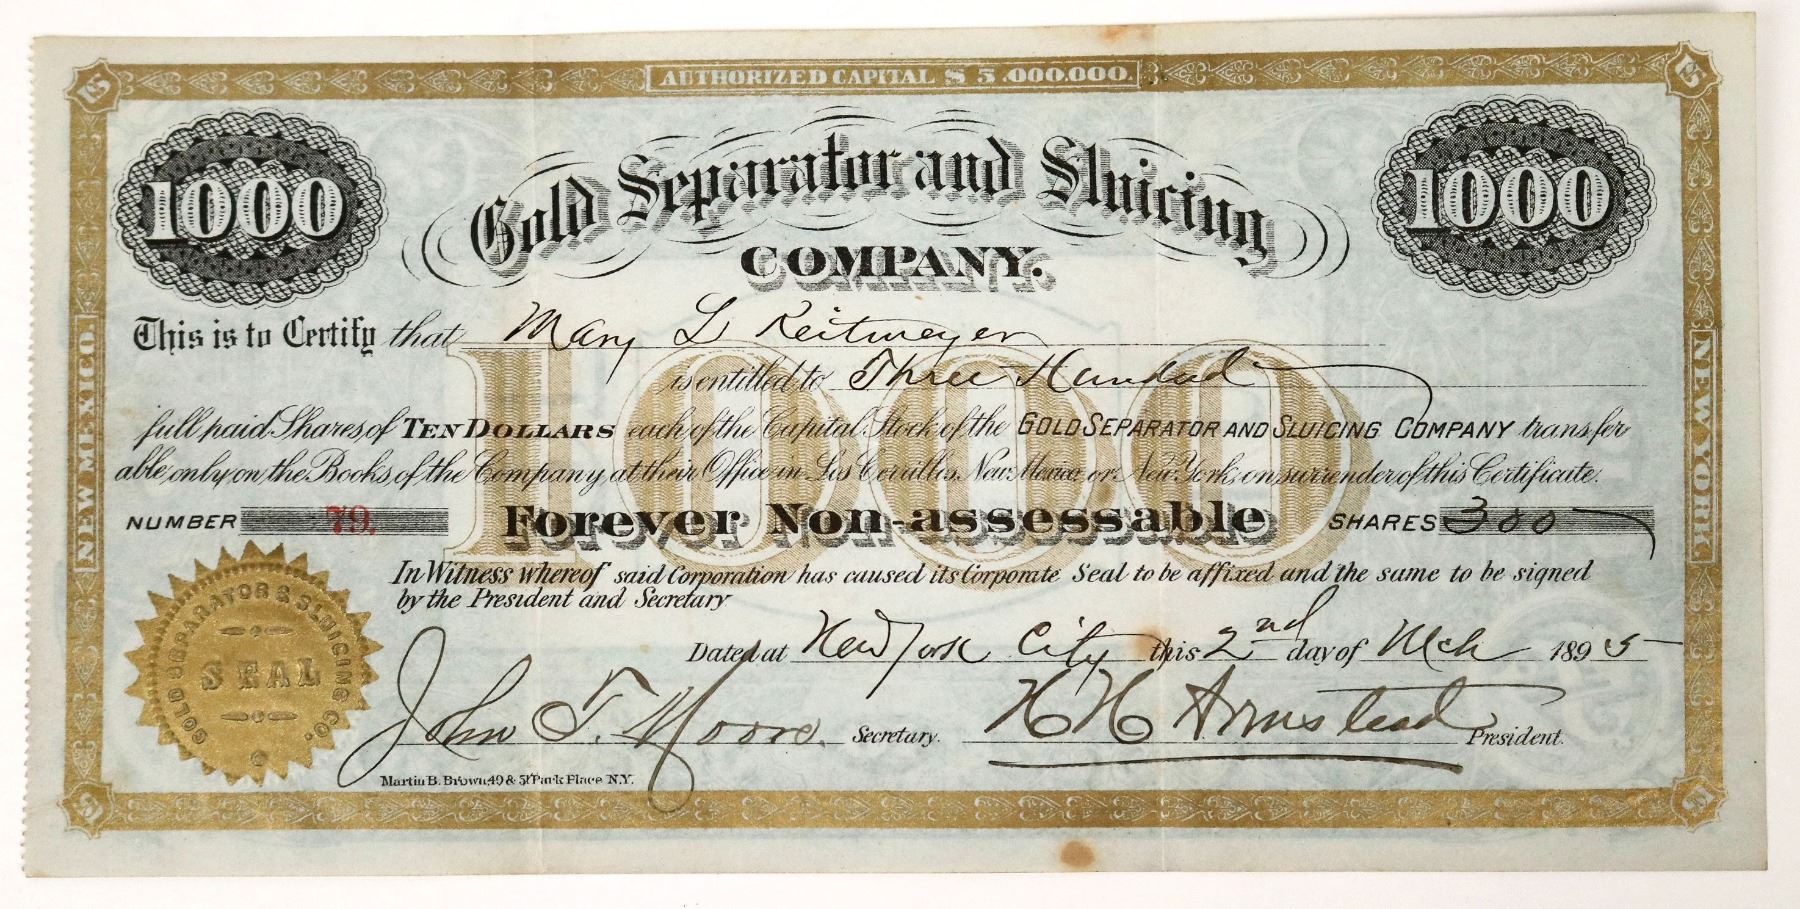 AUTHORIZED CAPITAL $ 5.000.000.
1000
1000
Gold Separator and Sluicing
COMPANY.
This is to Certify that Mary L Reitmeyer
is entitled to Three Hundred
full paid Shares of TEN DOLLARS each of the Capital Stock of the GOLD SEPARATOR AND SLUICING COMPANY transfer
able only on the Books of the Company at their Office in Los Cerrillos, New Mexico, or New York, on surrender of this Certificate.
NUMBER 79.
Forever Non-assessable
SHARES 300
1000
In Witness Whereof said Corporation has caused its Corporate Seal to be affixed and the same to be signed
by the President and Secretary
Dated at New York City this 2nd day of Mch 1895
John T. Moore. Secretary.
H H Armstead President.
Martin B. Brown, 49 & 51 Park Place N.Y.
GOLD SEPARATOR & SLUICING CO.
SEAL
NEW MEXICO.
NEW YORK.